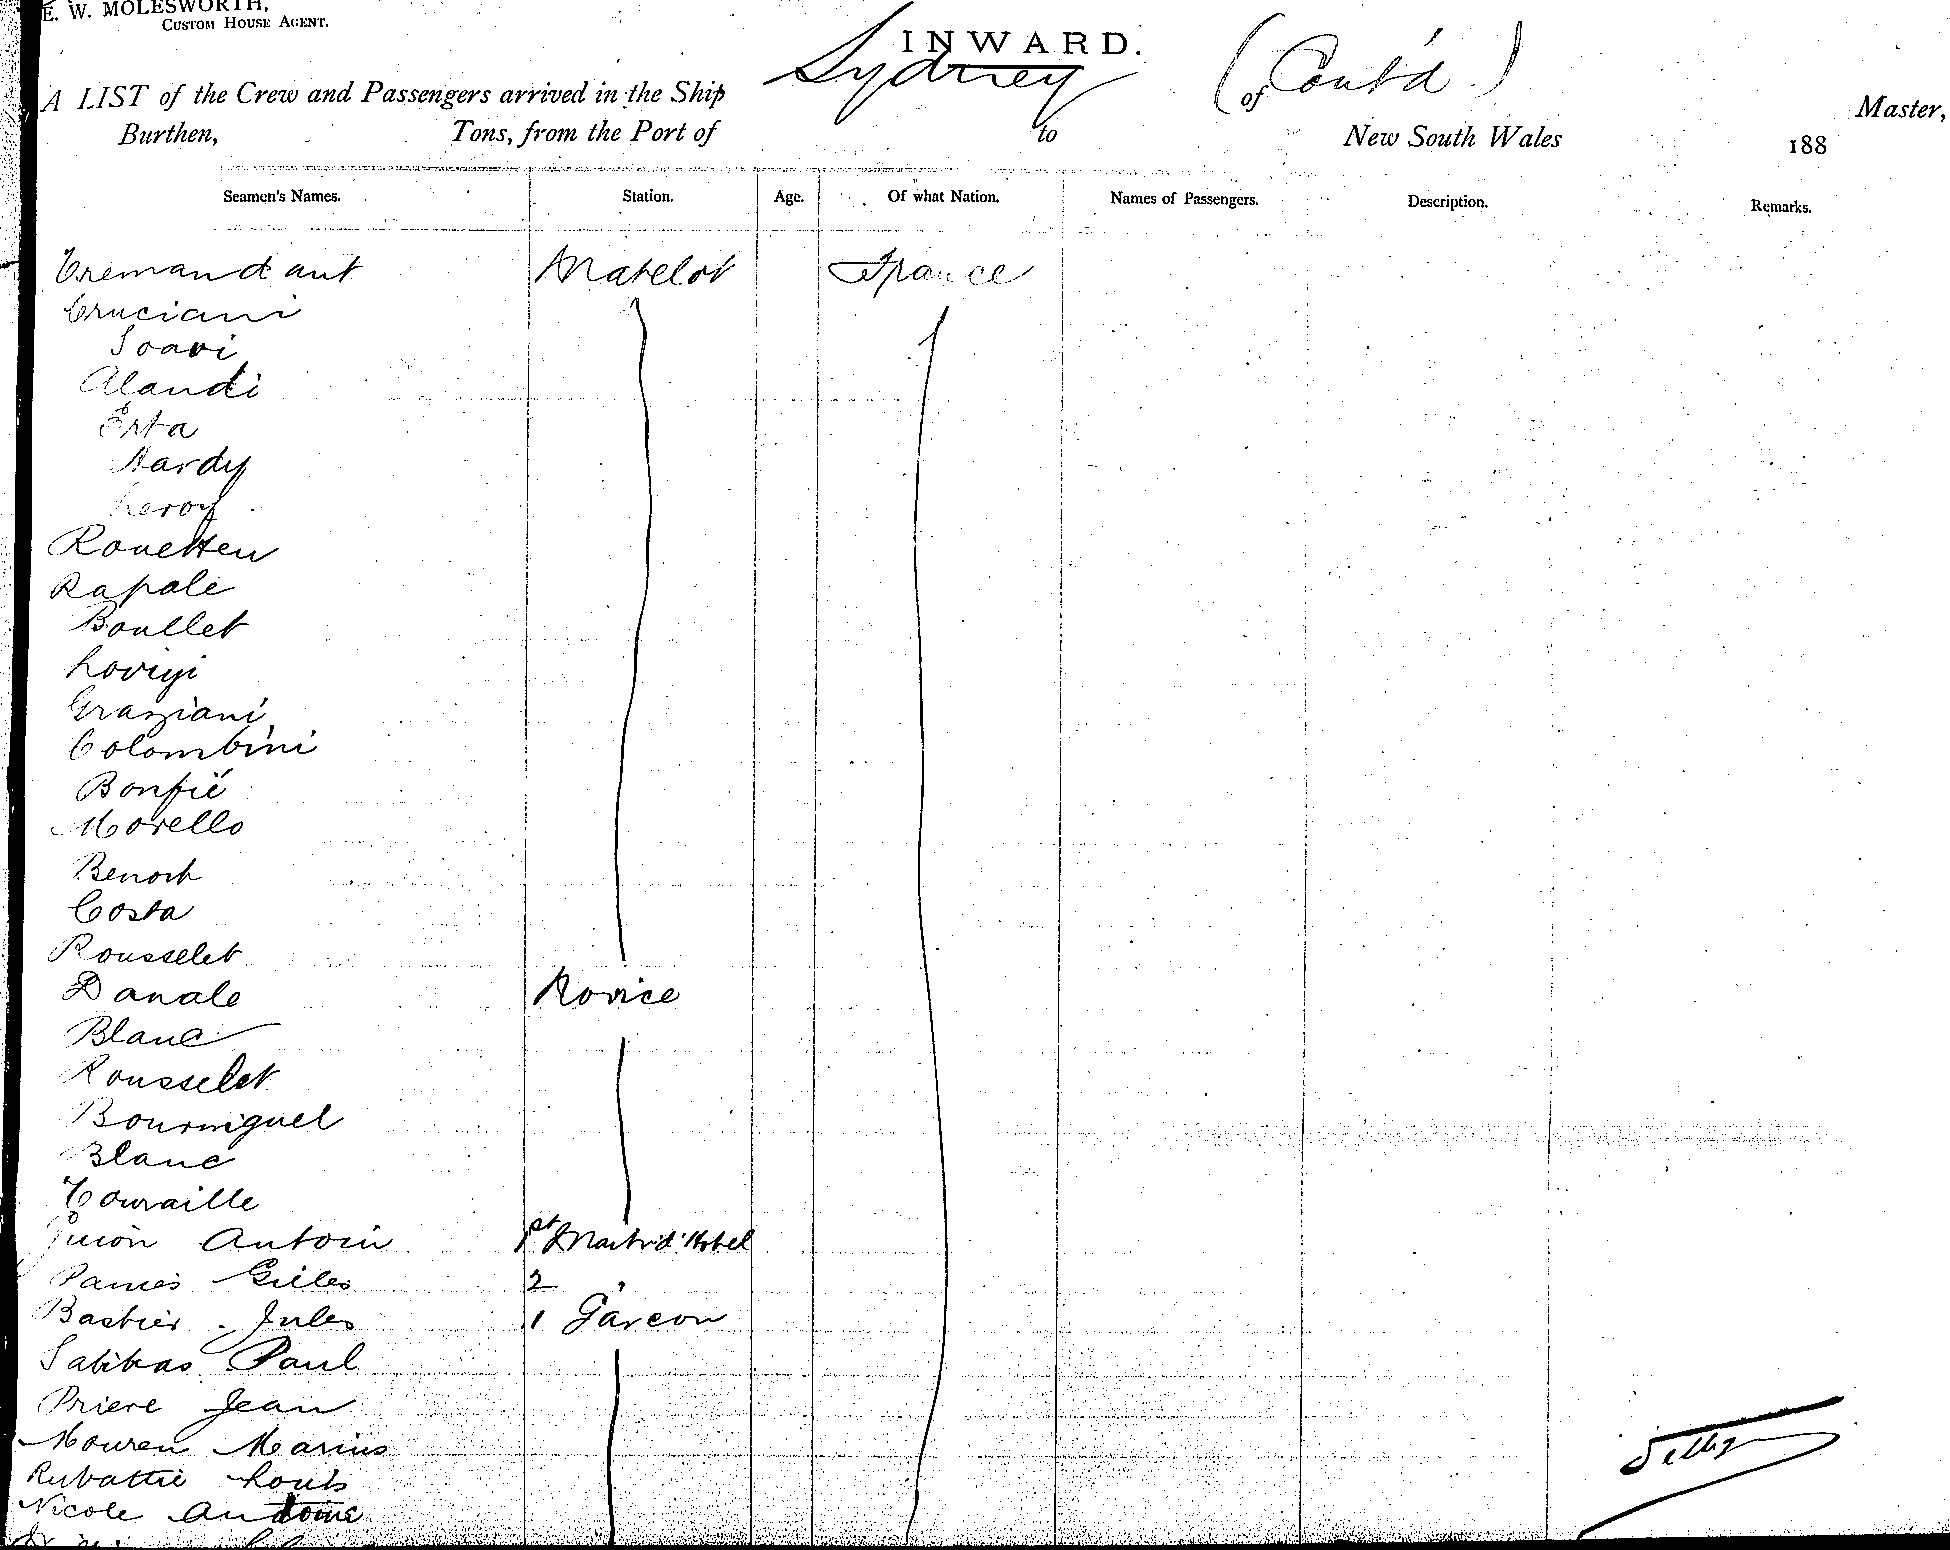 E. W. MOLESWORTH,
CUSTOM HOUSE AGENT.
INWARD.
A LIST of the Crew and Passengers arrived in the Ship Sydney (of Cont'd) Master,
Burthen, Tons, from the Port of to New South Wales 188
Seamen's Names. Station. Age. Of what Nation. Names of Passengers. Description. Remarks.
Tremandant Matelot France
Cruciani
Soavi
Alandi
Erta
Hardy
Leroy
Rouetten
Rapale
Boullet
Lovigi
Graziani
Colombini
Bonfié
Morello
Benoit
Costa
Rousselet
Danale Novice
Blanc
Rousselet
Bourniguel
Blanc
Touraille
Antoin 1st Maitr d'Hotel
Gilles 2 "
Bastier Jules 1 Garcon
Paul
Priere Jean
Mouren Marius
Rubattie Louis
Nicole Antoine